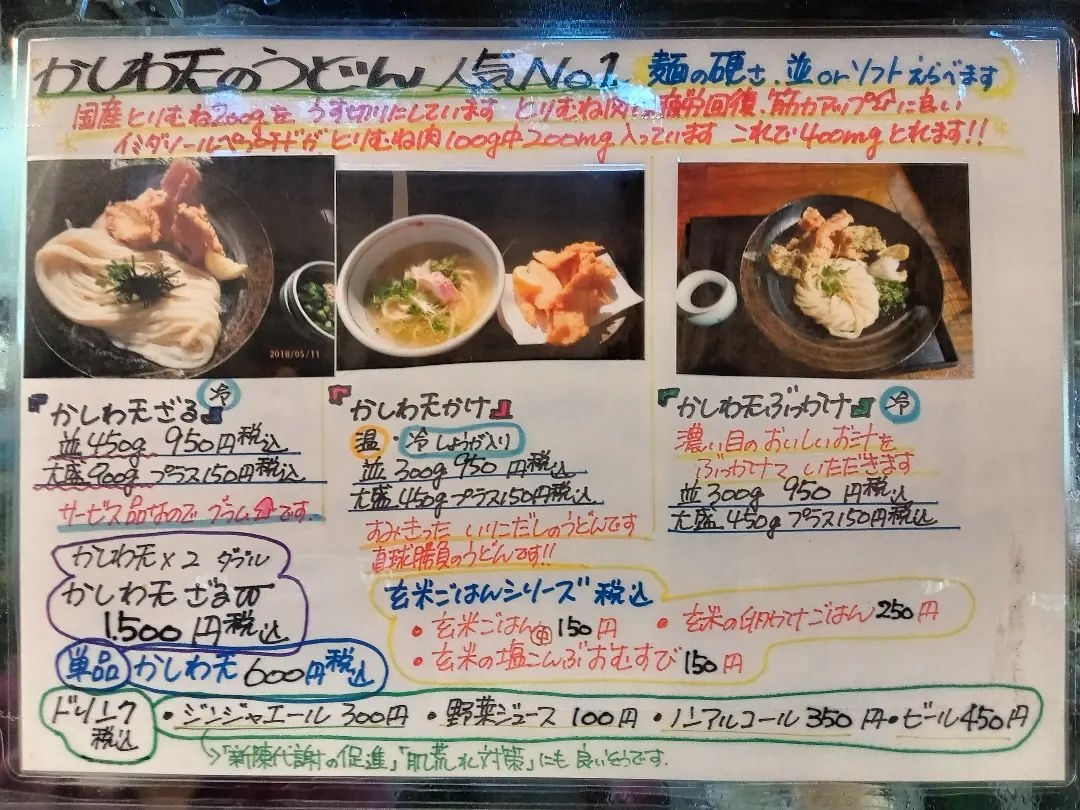 かしわ天のうどん人気No1 麺の硬さ、並orソフトえらべます
国産とりむね200gをうす切りにしています とりむね肉は疲労回復、筋力アップに良い
イミダゾールペプチドがとりむね肉100g中200mg入っています これで400mgとれます!!
2018/05/11
『かしわ天ざる』 冷
並450g 950円税込
大盛900gプラス150円税込
サービス品なのでプラムです。
『かしわ天かけ』
温・冷しょうが入り
並300g 950円税込
大盛450gプラス150円税込
すみきったいりこだしのうどんです
直球勝負のうどんです!!
『かしわ天ぶっかけ』 冷
濃い目のおいしいお汁を
ぶっかけていただきます
並300g 950円税込
大盛450gプラス150円税込
かしわ天×2 ダブル
かしわ天ざるW
1.500円税込
単品 かしわ天 600円税込
玄米ごはんシリーズ 税込
・玄米ごはん 150円 ・玄米の卵かけごはん250円
・玄米の塩こんぶおむすび150円
ドリンク税込 ・ジンジャエール300円 ・野菜ジュース100円 ・ノンアルコール350円 ・ビール450円
→「新陳代謝の促進」「肌荒れ対策」にも良いそうです。